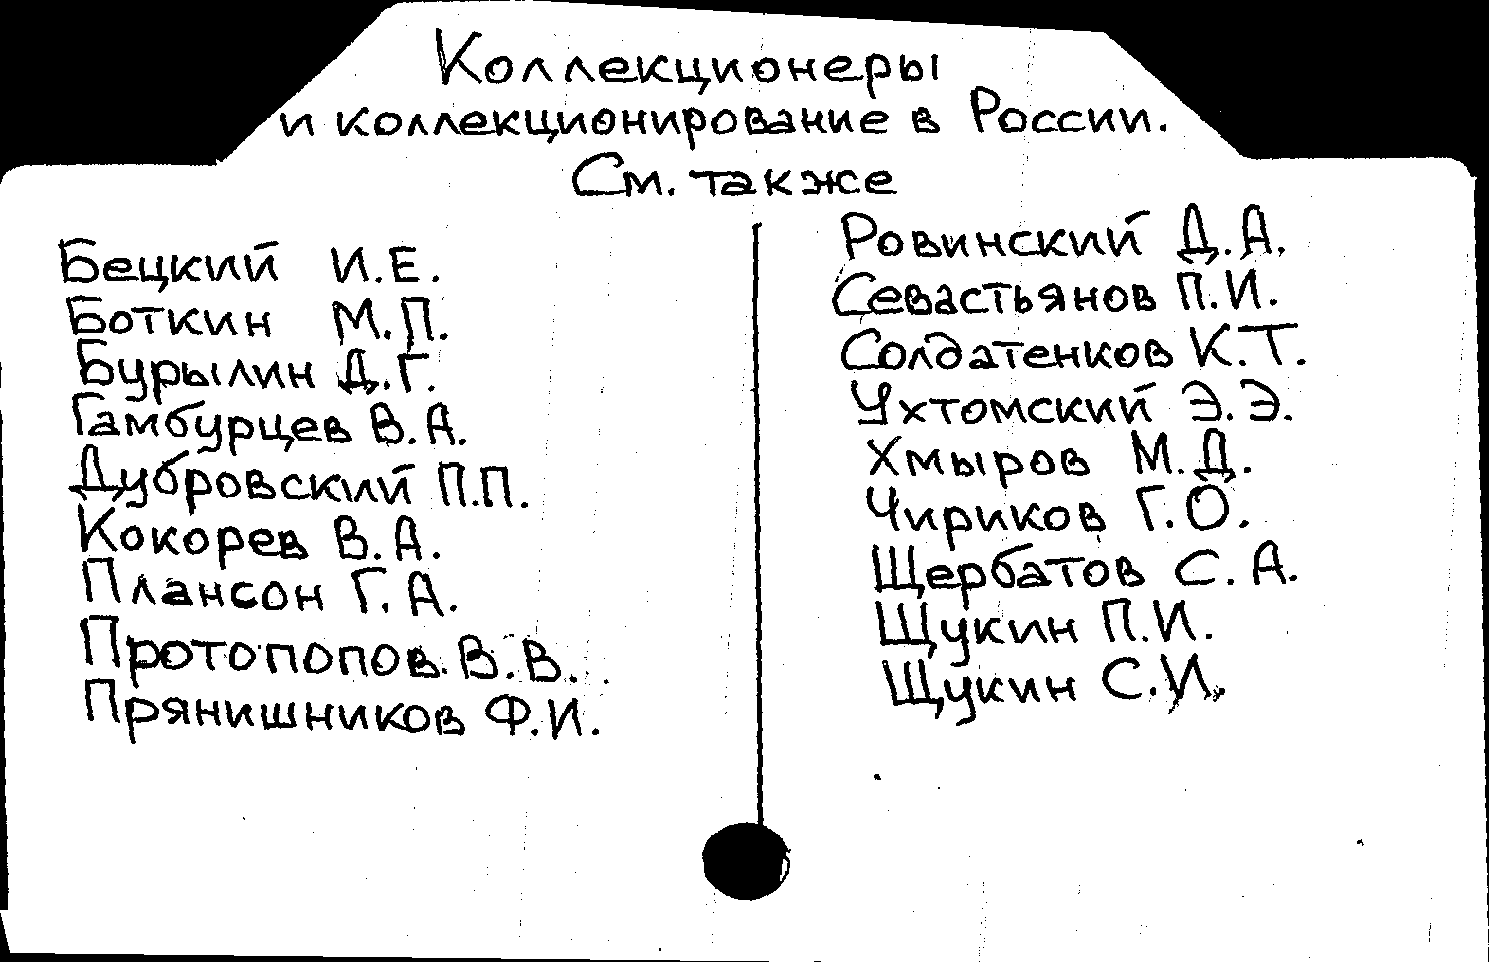 Коллекционеры
и коллекционирование в России.
См. также
Бецкий И.Е.
Боткин М.П.
Бурылин Д.Г.
Гамбурцев В.А.
Дубровский П.П.
Кокорев В.А.
Плансон Г.А.
Протопопов В.В.
Прянишников Ф.И.
Ровинский Д.А.
Севастьянов П.И.
Солдатенков К.Т.
Ухтомский Э.Э.
Хмыров М.Д.
Чириков Г.О.
Щербатов С.А.
Щукин П.И.
Щукин С.И.